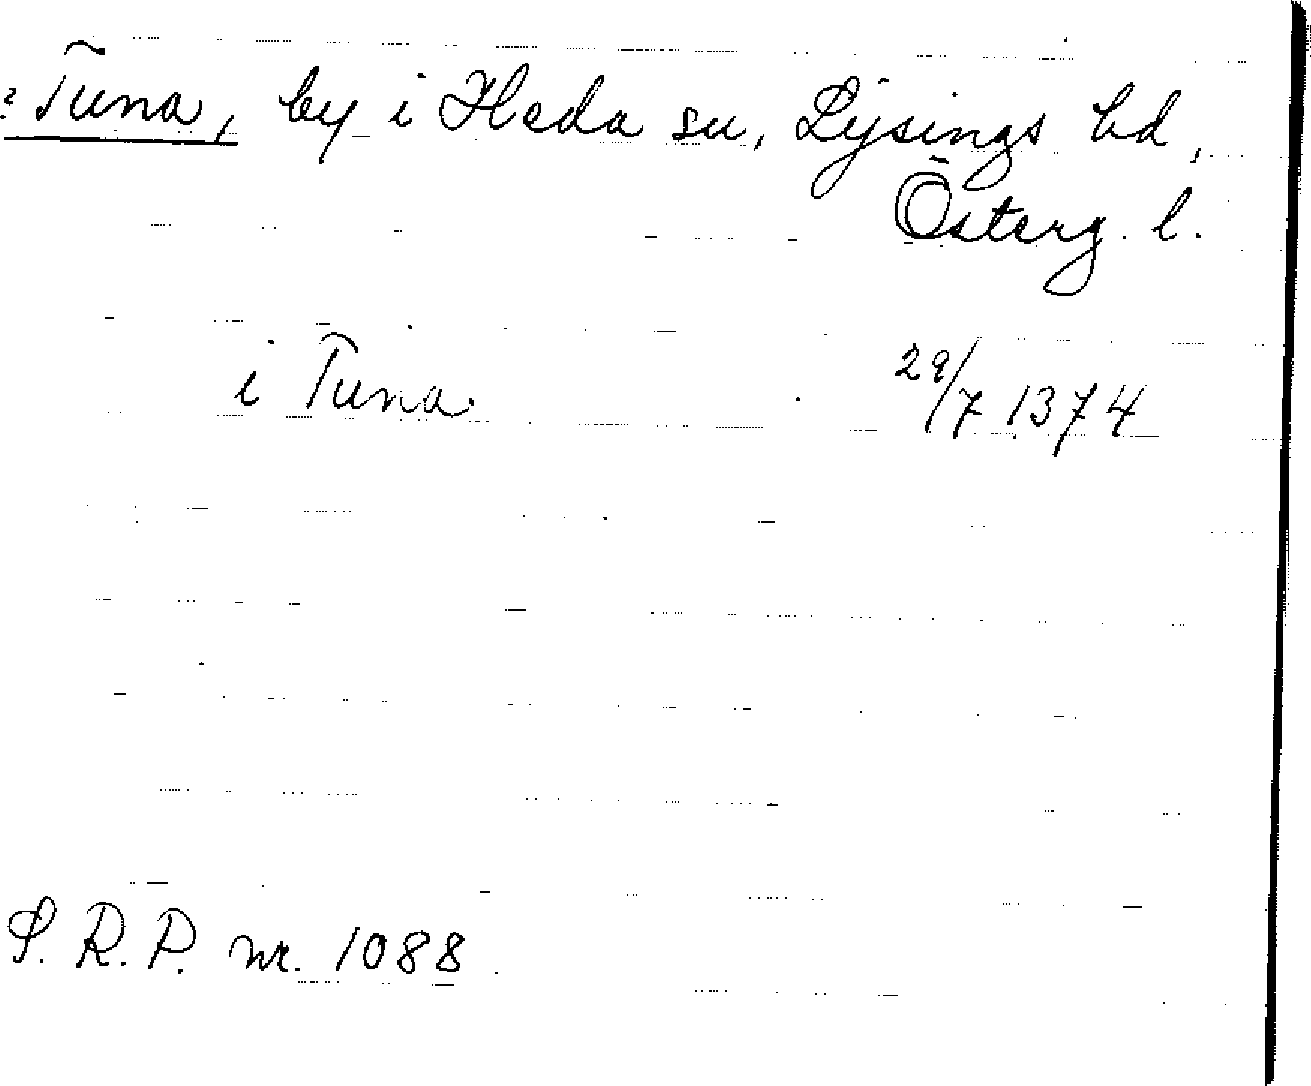 ? Tuna, by i Heda sn, Lysings hd,
Österg. l.
i Tuna. 29/7 1374
S. R. P. nr. 1088.